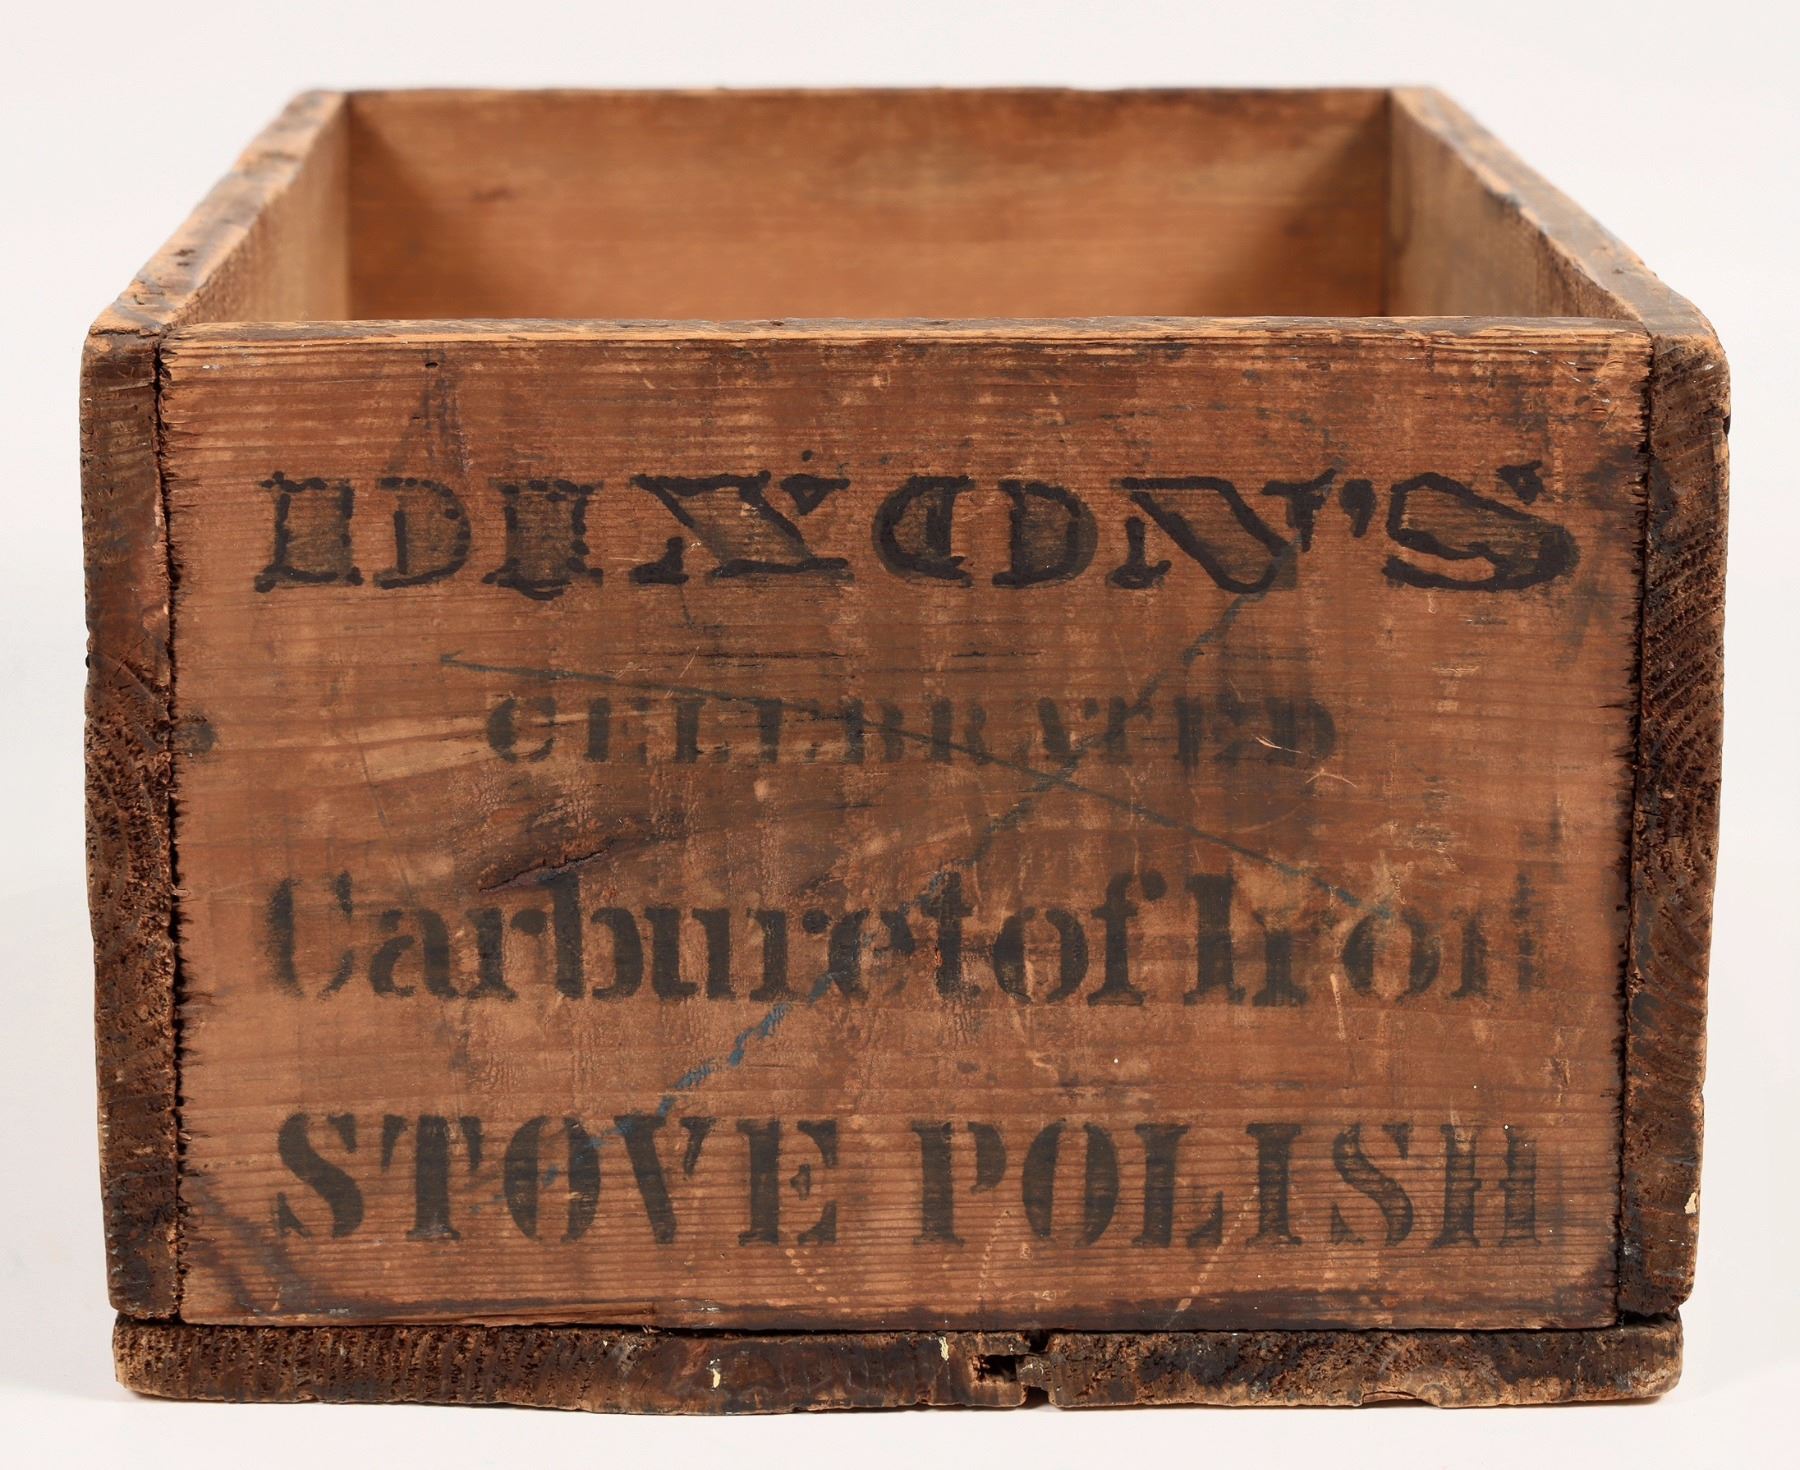 DIXON'S
CELEBRATED
Carburet of Iron
STOVE POLISH